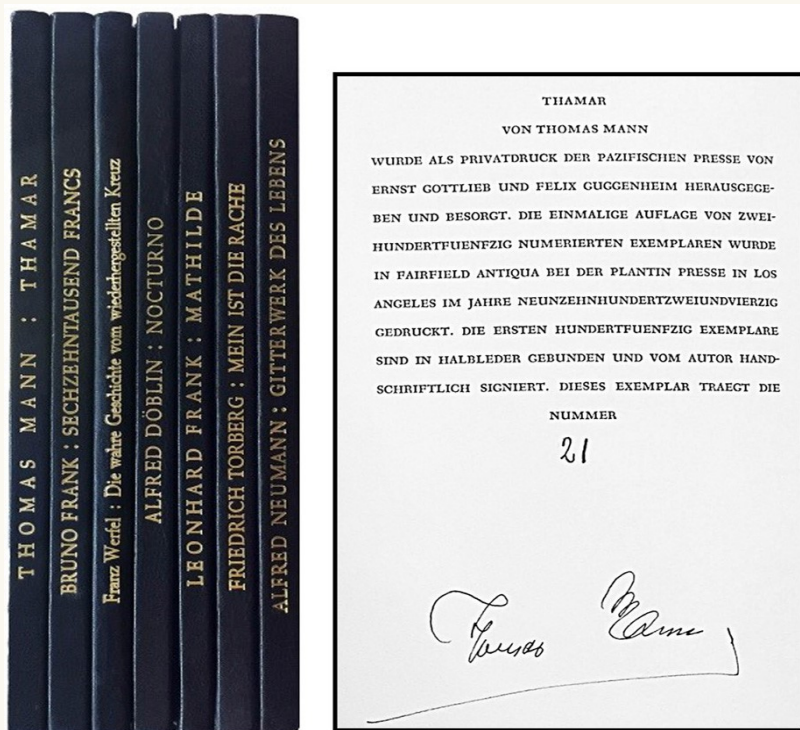 THOMAS MANN : THAMAR
BRUNO FRANK : SECHZEHNTAUSEND FRANCS
Franz Werfel : Die wahre Geschichte vom wiederhergestellten Kreuz
ALFRED DÖBLIN : NOCTURNO
LEONHARD FRANK : MATHILDE
FRIEDRICH TORBERG : MEIN IST DIE RACHE
ALFRED NEUMANN : GITTERWERK DES LEBENS
THAMAR
VON THOMAS MANN
WURDE ALS PRIVATDRUCK DER PAZIFISCHEN PRESSE VON
ERNST GOTTLIEB UND FELIX GUGGENHEIM HERAUSGEGE-
BEN UND BESORGT. DIE EINMALIGE AUFLAGE VON ZWEI-
HUNDERTFUENFZIG NUMERIERTEN EXEMPLAREN WURDE
IN FAIRFIELD ANTIQUA BEI DER PLANTIN PRESSE IN LOS
ANGELES IM JAHRE NEUNZEHNHUNDERTZWEIUNDVIERZIG
GEDRUCKT. DIE ERSTEN HUNDERTFUENFZIG EXEMPLARE
SIND IN HALBLEDER GEBUNDEN UND VOM AUTOR HAND-
SCHRIFTLICH SIGNIERT. DIESES EXEMPLAR TRAEGT DIE
NUMMER
21
Thomas Mann